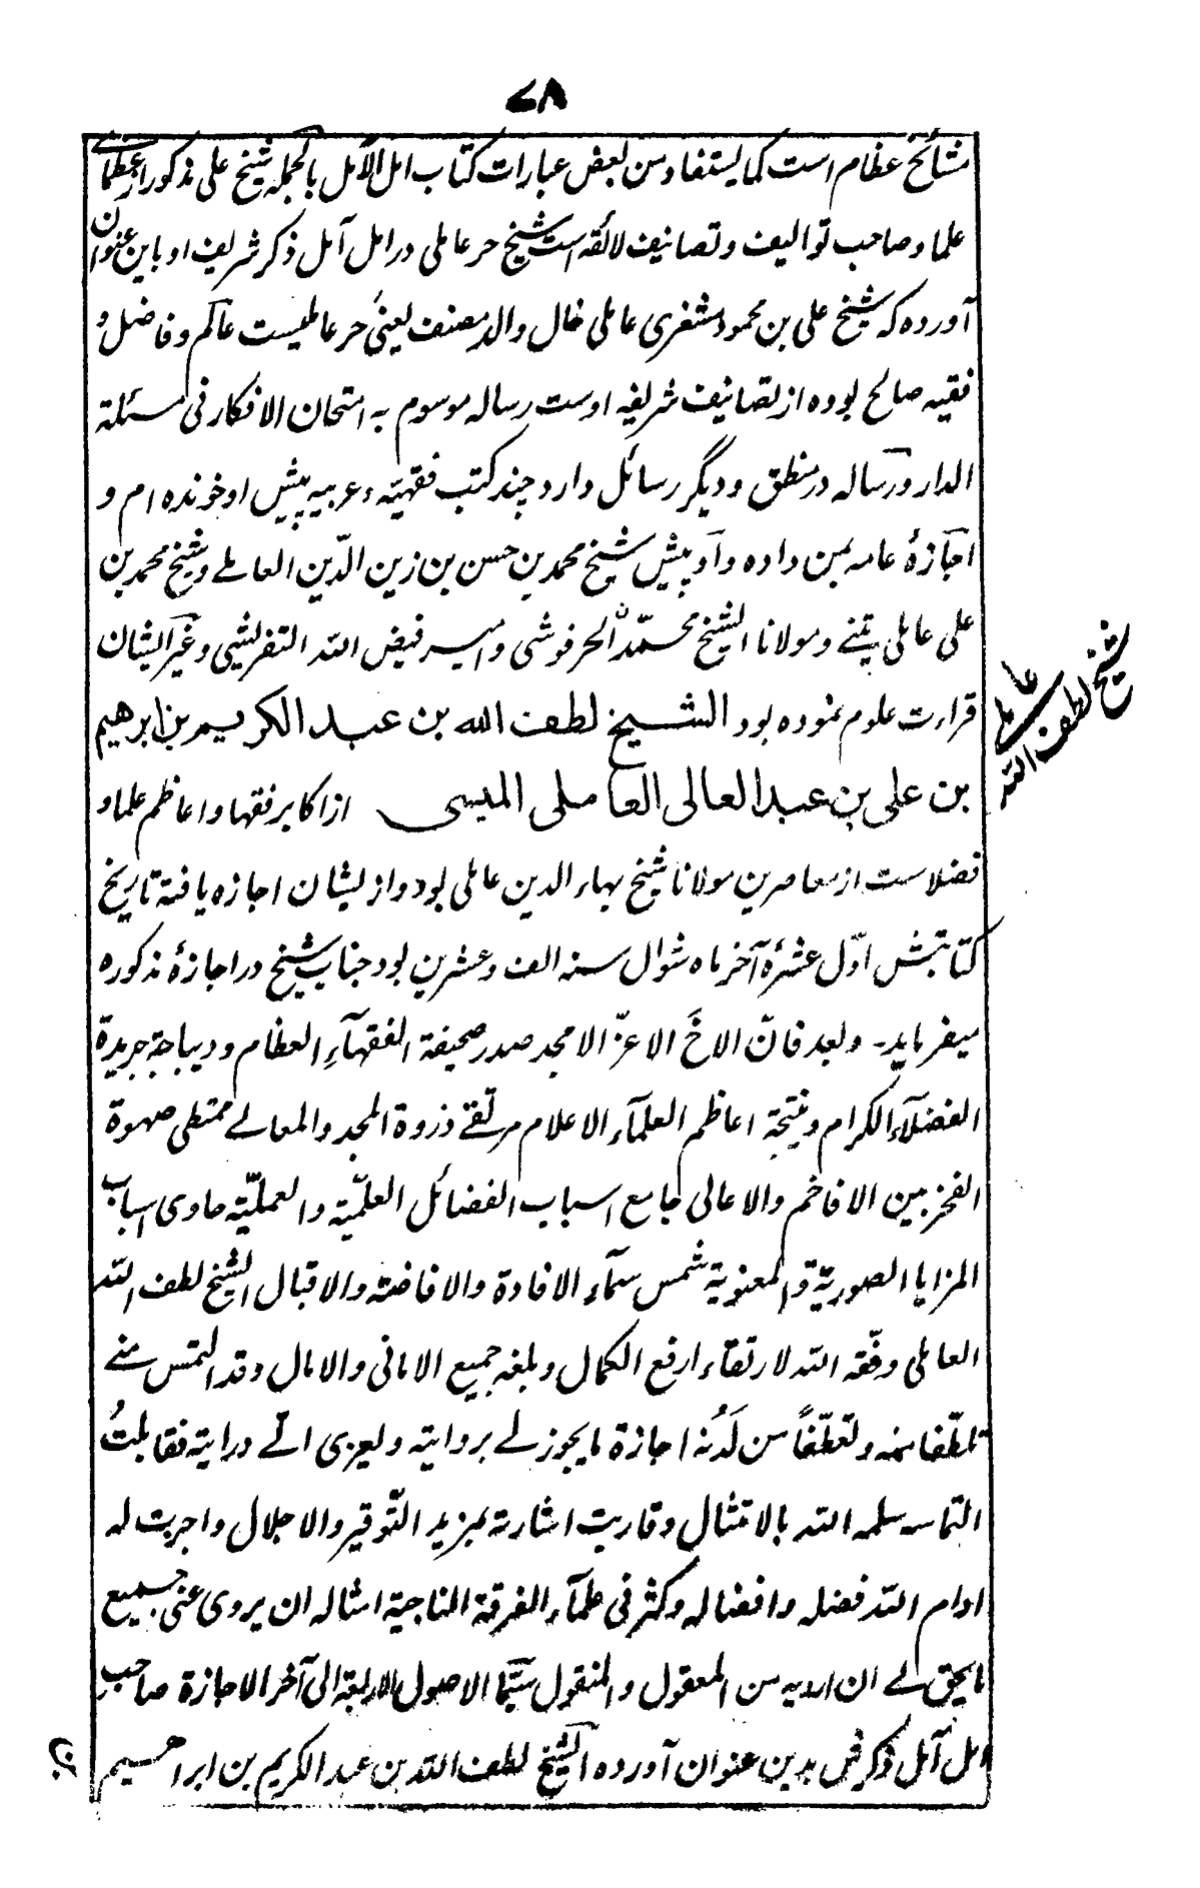 ۷۸
مشائخ عظام است کما یستفاد من بعض عبارات کتاب امل الآمل بالجمله شیخ علی مذکور از عظمای
علما و صاحب توالیف و تصانیف لائقه است شیخ حر عاملی در امل آمل ذکر شریف او باین عنوان
آورده که شیخ علی بن محمود مشغری عاملی خال والد مصنف یعنی حر عاملیست عالم و فاضل و
فقیه صالح بوده از تصانیف شریفه اوست رساله موسوم به امتحان الافکار فی مسئلة
الدار و رساله در منطق و دیگر رسائل دارد چند کتب فقهیّه و عربیه پیش او خوانده ام و
اجازهٔ عامه بمن داده و او پیش شیخ محمد بن حسن بن زین الدّین العاملے و شیخ محمد بن
علی عاملی تبنے و مولانا الشیخ محمّد الحرفوشی و میر فیض الله التفرشی و غیر ایشان
قراءت علوم نموده بود الشیخ لطف الله بن عبد الکریم بن ابرهیم
بن علی بن عبد العالی العاملی المیسی از اکابر فقها و اعاظم علما و
فضلاست از معاصرین مولانا شیخ بهاء الدین عاملی بود و از ایشان اجازه یافته تاریخ
کتابتش اوّل عشرهٔ آخر ماه شوال سنه الف و عشرین بود جناب شیخ در اجازهٔ مذکوره
میفرماید۔ و بعد فانّ الاخ الاعزّ الامجد صدر صحیفة الفقهآءِ العظام و دیباجة جریدة
الفضلآء الکرام و نتیجة اعاظم العلمآء الاعلام مرتقے ذروة المجد والمعالے ممتطی صهوة
الفخر بین الافاخم والاعالی جامع اسباب الفضائل العلمیّة والعملیّة حاوی اسباب
المزایا الصوریّة والمعنویة شمس سمآء الافادة والافاضة والاقبال الشیخ لطف الله
العاملی وفّقه الله لارتقاء ارفع الکمال و بلغه جمیع الامانی والامال و قد التمس منے
تلطّفا منه و تعطّفاً من لَدُنه اجازة ما یجوز لے بروایته و یعزی الے درایته فقابلتُ
التماسه سلمه الله بالامتثال و قاربت اشارته بمزید التّوقیر والاجلال و اجزت له
ادام الله فضله و افضاله و کثر فی علمآء الفرقة الناجیة امثاله ان یروی عنی جمیع
ما یحق لے ان ارویه من المعقول والمنقول سیّما الاصول الاربعة الی آخر الاجازة صاحب
امل آمل ذکرش بدین عنوان آورده الشیخ لطف الله بن عبد الکریم بن ابراهیم
شیخ لطف الله
عاملی
بن